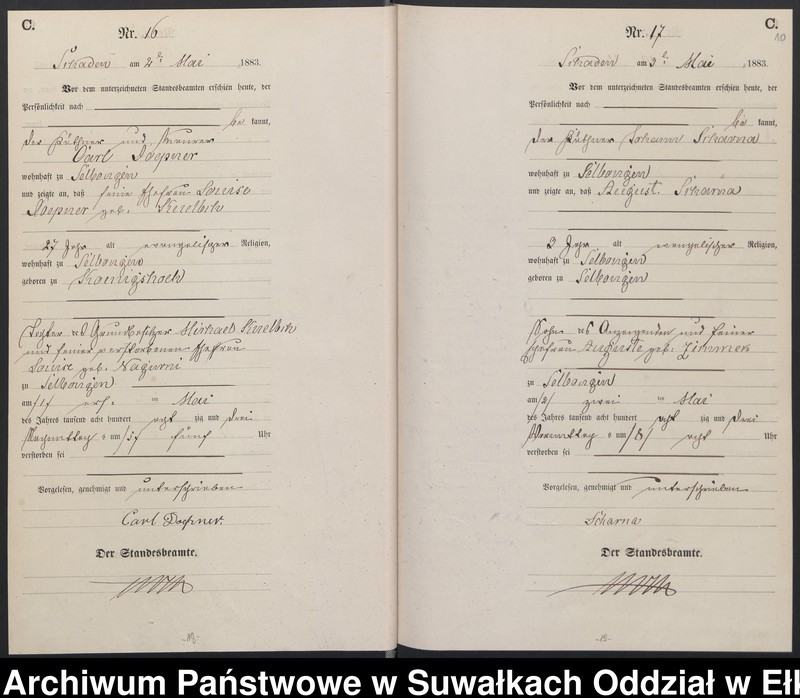 C.
Nr. 16
Schaden am 2ᵗ Mai 1883.
Vor dem unterzeichneten Standesbeamten erschien heute, der
Persönlichkeit nach
be kannt,
der Käthner und Maurer
Carl
wohnhaft zu Selbongen
und zeigte an, daß seine Ehefrau Louise
geb.
27 Jahr alt evangelischer Religion,
wohnhaft zu Selbongen
geboren zu Koenigshoeh
Tochter des Grundbesitzer Michael
und seiner verstorbenen Ehefrau
Louise geb. Nagurni
zu Selbongen
am /1/ ers. ten Mai
des Jahres tausend acht hundert acht zig und drei
Nachmittag s um /5/ fünf Uhr
verstorben sei
Vorgelesen, genehmigt und unterschrieben
Carl
Der Standesbeamte.
C.
Nr. 17
Schaden am 3ᵗ Mai 1883.
Vor dem unterzeichneten Standesbeamten erschien heute, der
Persönlichkeit nach
be kannt,
der Käthner Johann Scharna
wohnhaft zu Selbongen
und zeigte an, daß August Scharna
3 Jahr alt evangelischer Religion,
wohnhaft zu Selbongen
geboren zu Selbongen
Sohn des Anzeigenden und seiner
Ehefrau Auguste geb. Zimmek
zu Selbongen
am /2/ zwei ten Mai
des Jahres tausend acht hundert acht zig und drei
Vormittag s um /8/ acht Uhr
verstorben sei
Vorgelesen, genehmigt und unterschrieben
Scharna
Der Standesbeamte.
Archiwum Państwowe w Suwałkach Oddział w Eł